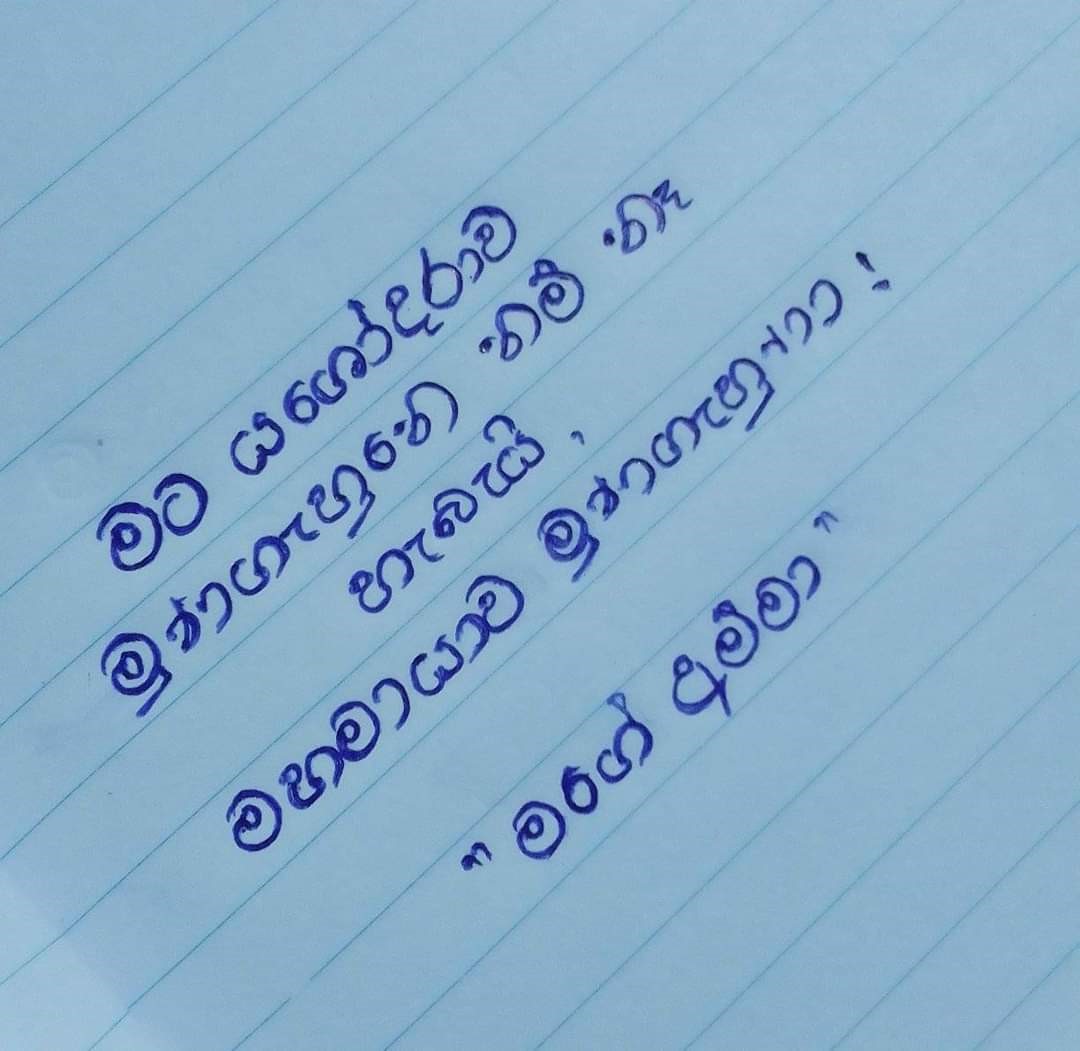 මට යශෝදරාව
මුණගැහුනෙ නම් නෑ
හැබැයි,
මහමායාව මුණගැහුණා !
"මගේ අම්මා"